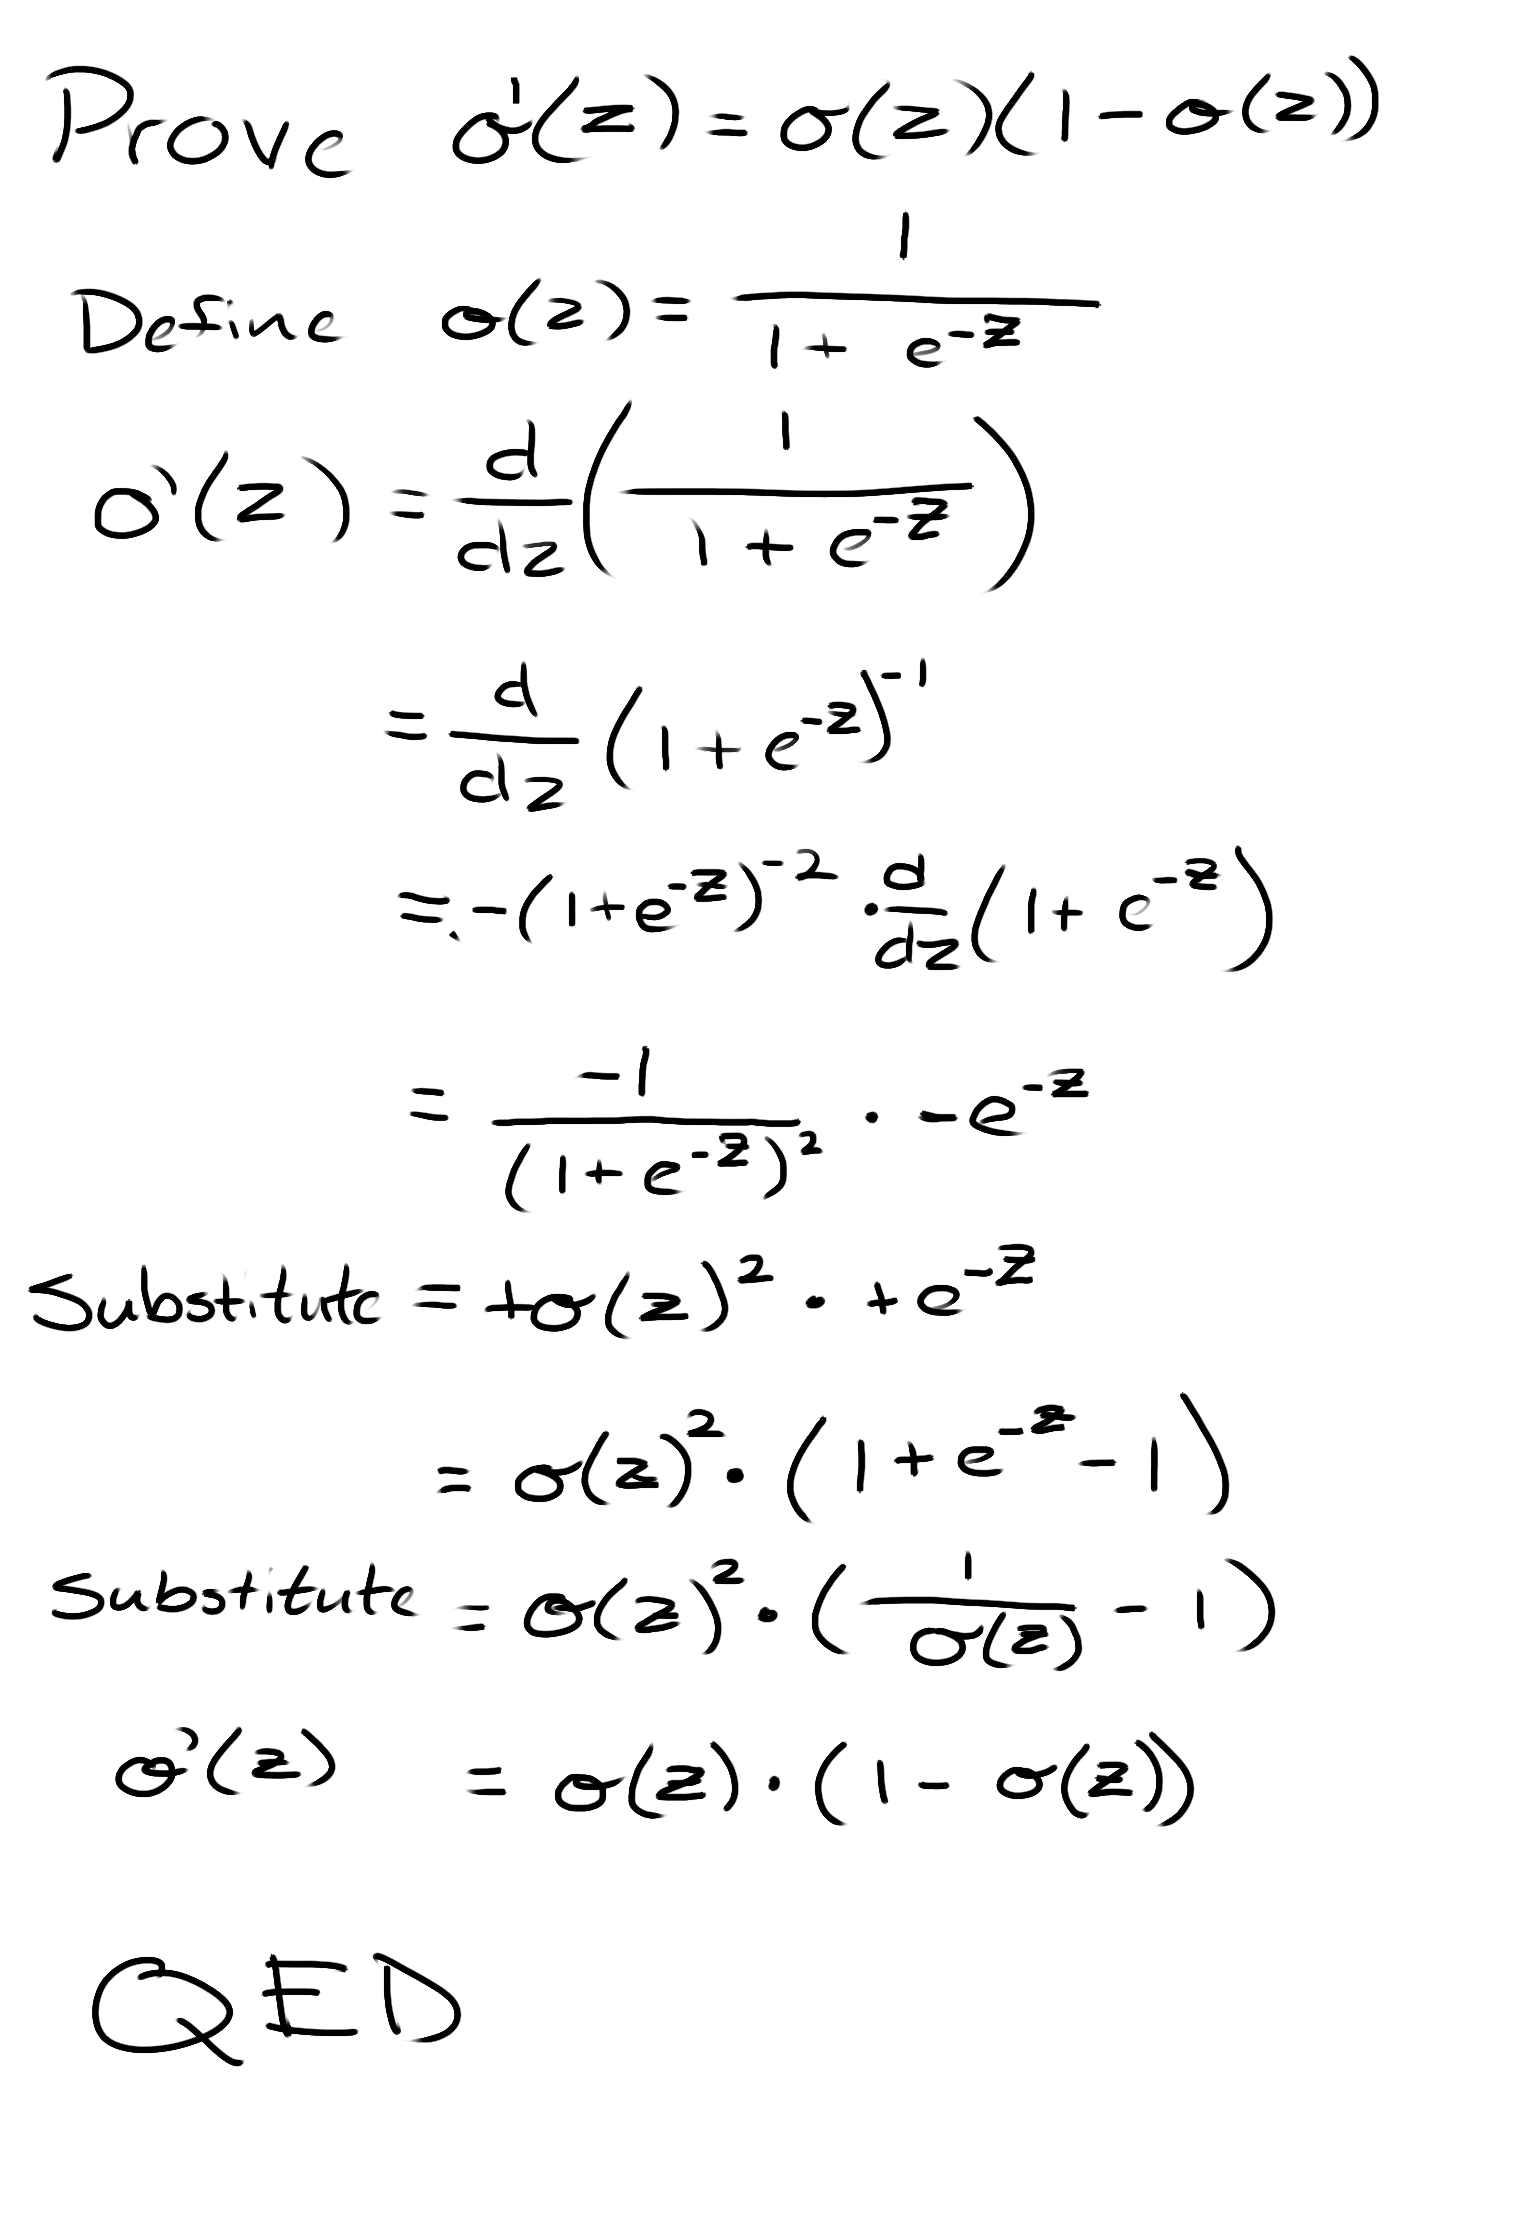 Prove σ'(z) = σ(z)(1 - σ(z))
Define σ(z) = \frac{1}{1 + e^{-z}}
σ'(z) = \frac{d}{dz}(\frac{1}{1 + e^{-z}})
= \frac{d}{dz}(1 + e^{-z})^{-1}
= -(1+e^{-z})^{-2} · \frac{d}{dz}(1 + e^{-z})
= \frac{-1}{(1+e^{-z})^2} · -e^{-z}
Substitute = +σ(z)^2 · +e^{-z}
= σ(z)^2 · (1 + e^{-z} - 1)
Substitute = σ(z)^2 · (\frac{1}{σ(z)} - 1)
σ'(z) = σ(z) · (1 - σ(z))
QED